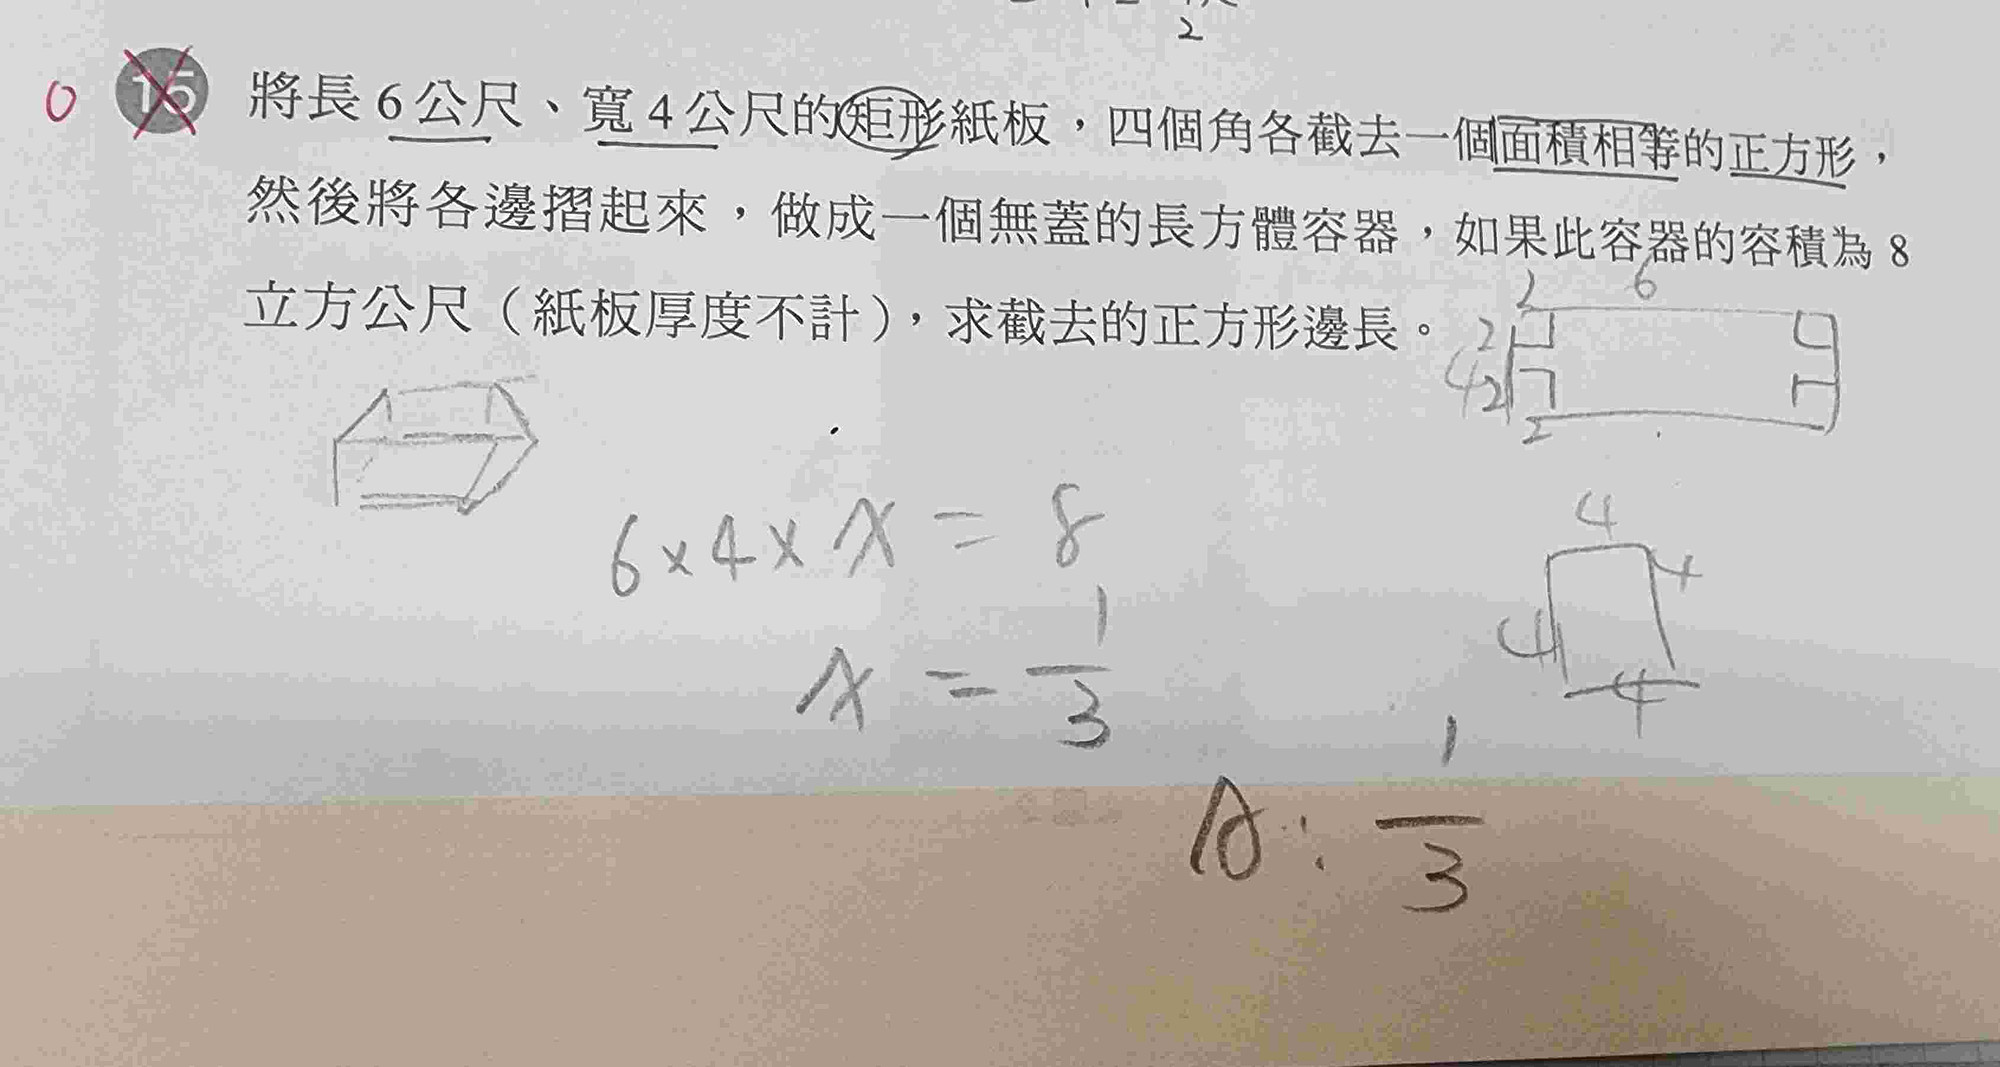 2
0 15 將長 6 公尺、寬 4 公尺的矩形紙板，四個角各截去一個面積相等的正方形，
然後將各邊摺起來，做成一個無蓋的長方體容器，如果此容器的容積為 8
立方公尺（紙板厚度不計），求截去的正方形邊長。
2 6
2
4 2
2
6 × 4 × x = 8
x = 1/3
4
4 4
4
A : 1/3